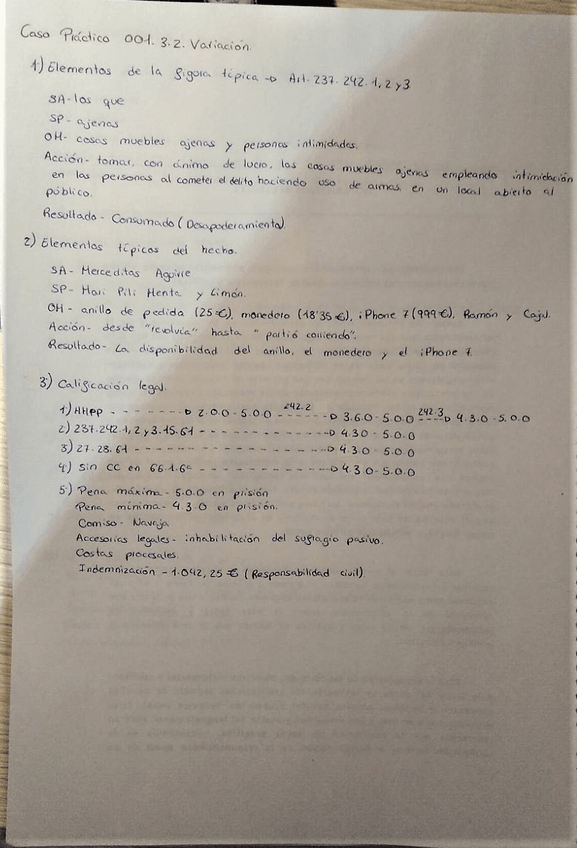 Caso Práctico 001.3.2. Variación.
1) Elementos de la figura típica → Art. 237. 242. 1, 2 y 3
SA- los que
SP- ajenas
OH- cosas muebles ajenas y personas intimidades.
Acción- tomar, con ánimo de lucro, las cosas muebles ajenas empleando intimidación
en las personas al cometer el delito haciendo uso de armas en un local abierto al
público.
Resultado- Consumado (Desapoderamiento)
2) Elementos típicos del hecho.
SA- Merceditas Aguirre
SP- Mari Pili Menta y Limón.
OH- anillo de pedida (25€), monedero (18'35€), iPhone 7 (999€). Ramón y Cajal.
Acción- desde "revolvía" hasta "partió corriendo".
Resultado- La disponibilidad del anillo, el monedero y el iPhone 7.
3) Calificación legal.
1) HHPP - - - - - - → 2.0.0 - 5.0.0 242.2 - - - - → 3.6.0 - 5.0.0 242.3 → 4.3.0 - 5.0.0
2) 237. 242. 1, 2 y 3. 15. 61 - - - - - - - - - → 4.3.0 - 5.0.0
3) 27. 28. 61 - - - - - - - - - - - → 4.3.0 - 5.0.0
4) Sin CC en 66.1.6ª - - - - - - - - → 4.3.0 - 5.0.0
5) Pena máxima - 5.0.0 en prisión
Pena mínima - 4.3.0 en prisión.
Comiso - Navaja
Accesorias legales - inhabilitación del sufragio pasivo.
Costas procesales.
Indemnización - 1.042,25 € (Responsabilidad civil)